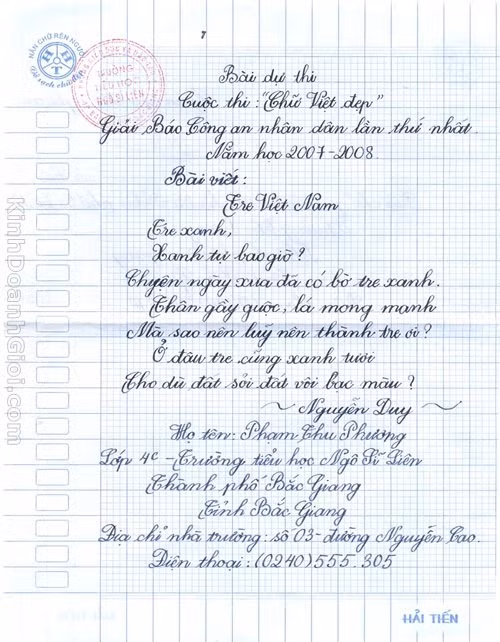 NẮN CHỮ RÈN NGƯỜI
HHT
Vở sạch chữ đẹp
TRƯỜNG
TIỂU HỌC
NGÔ SĨ LIÊN
Bài dự thi
Cuộc thi: "Chữ Việt đẹp"
Giải Báo Công an nhân dân lần thứ nhất.
Năm học 2007-2008.
Bài viết:
Tre Việt Nam
Tre xanh,
Xanh tự bao giờ?
Chuyện ngày xưa đã có bờ tre xanh.
Thân gầy guộc, lá mong manh
Mà sao nên luỹ nên thành tre ơi?
Ở đâu tre cũng xanh tươi
Cho dù đất sỏi đất vôi bạc màu?
~ Nguyễn Duy ~
Họ tên: Phạm Thu Phương
Lớp 4c - Trường tiểu học Ngô Sĩ Liên
Thành phố Bắc Giang
Tỉnh Bắc Giang
Địa chỉ nhà trường: số 03 - đường Nguyễn Cao.
Điện thoại: (0240) 555.305
HẢI TIẾN
KinhDoanhGioi.com